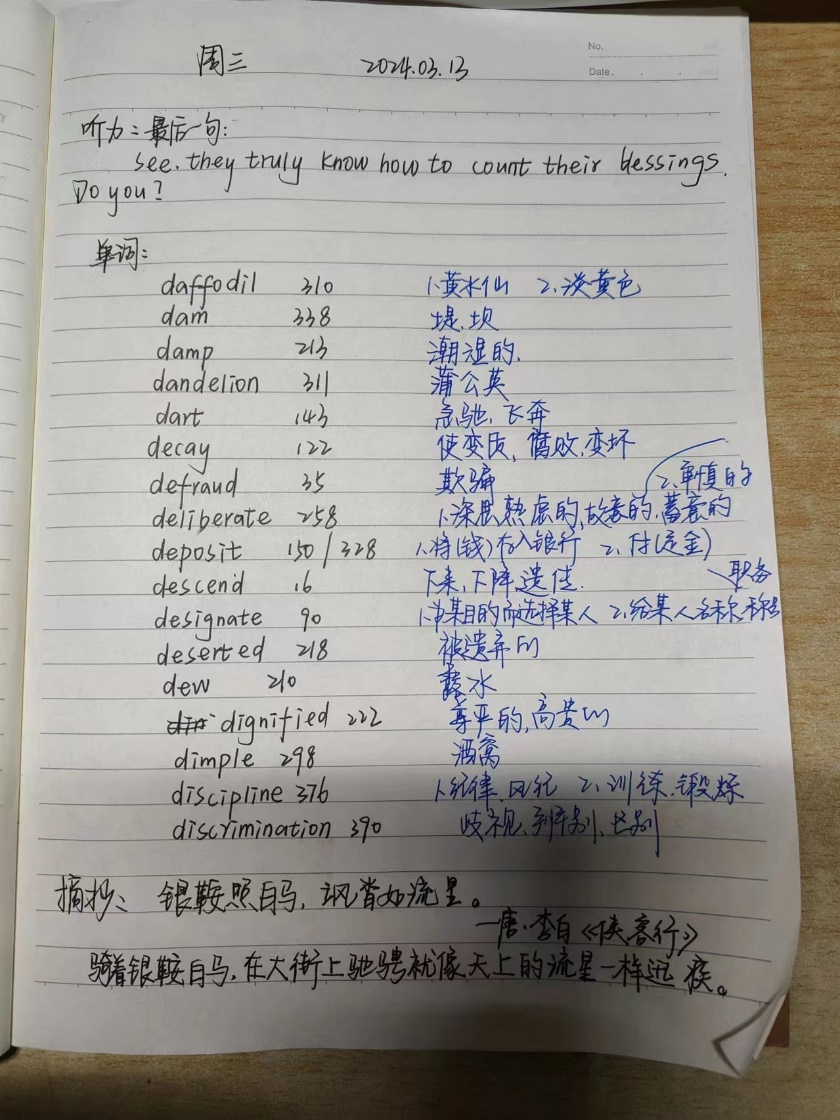 周三 2024.03.13
No.
Date.
听力:最后一句:
see. they truly know how to count their blessings.
Do you?
单词:
daffodil 310 1.黄水仙 2.淡黄色
dam 338 堤.坝
damp 213 潮湿的.
dandelion 311 蒲公英
dart 143 急驰.飞奔
decay 122 使变质,腐败.变坏
defraud 35 欺骗
2.审慎的
deliberate 258 1.深思熟虑的,故意的.蓄意的
deposit 150/328 1.将(钱)存入银行 2.付(定金)
descend 16 下来,下降遗传.
职务
designate 90 1.为某目的而选择某人 2.给某人名称.称号
deserted 218 被遗弃的
dew 210 露水
dignified 222 尊严的,高贵的
dimple 298 酒窝
discipline 376 1.纪律.风纪 2.训练.锻炼
discrimination 390 歧视.判别.区别
摘抄: 银鞍照白马,飒沓如流星。
—唐·李白《侠客行》
骑着银鞍白马,在大街上驰骋就像天上的流星一样迅疾。